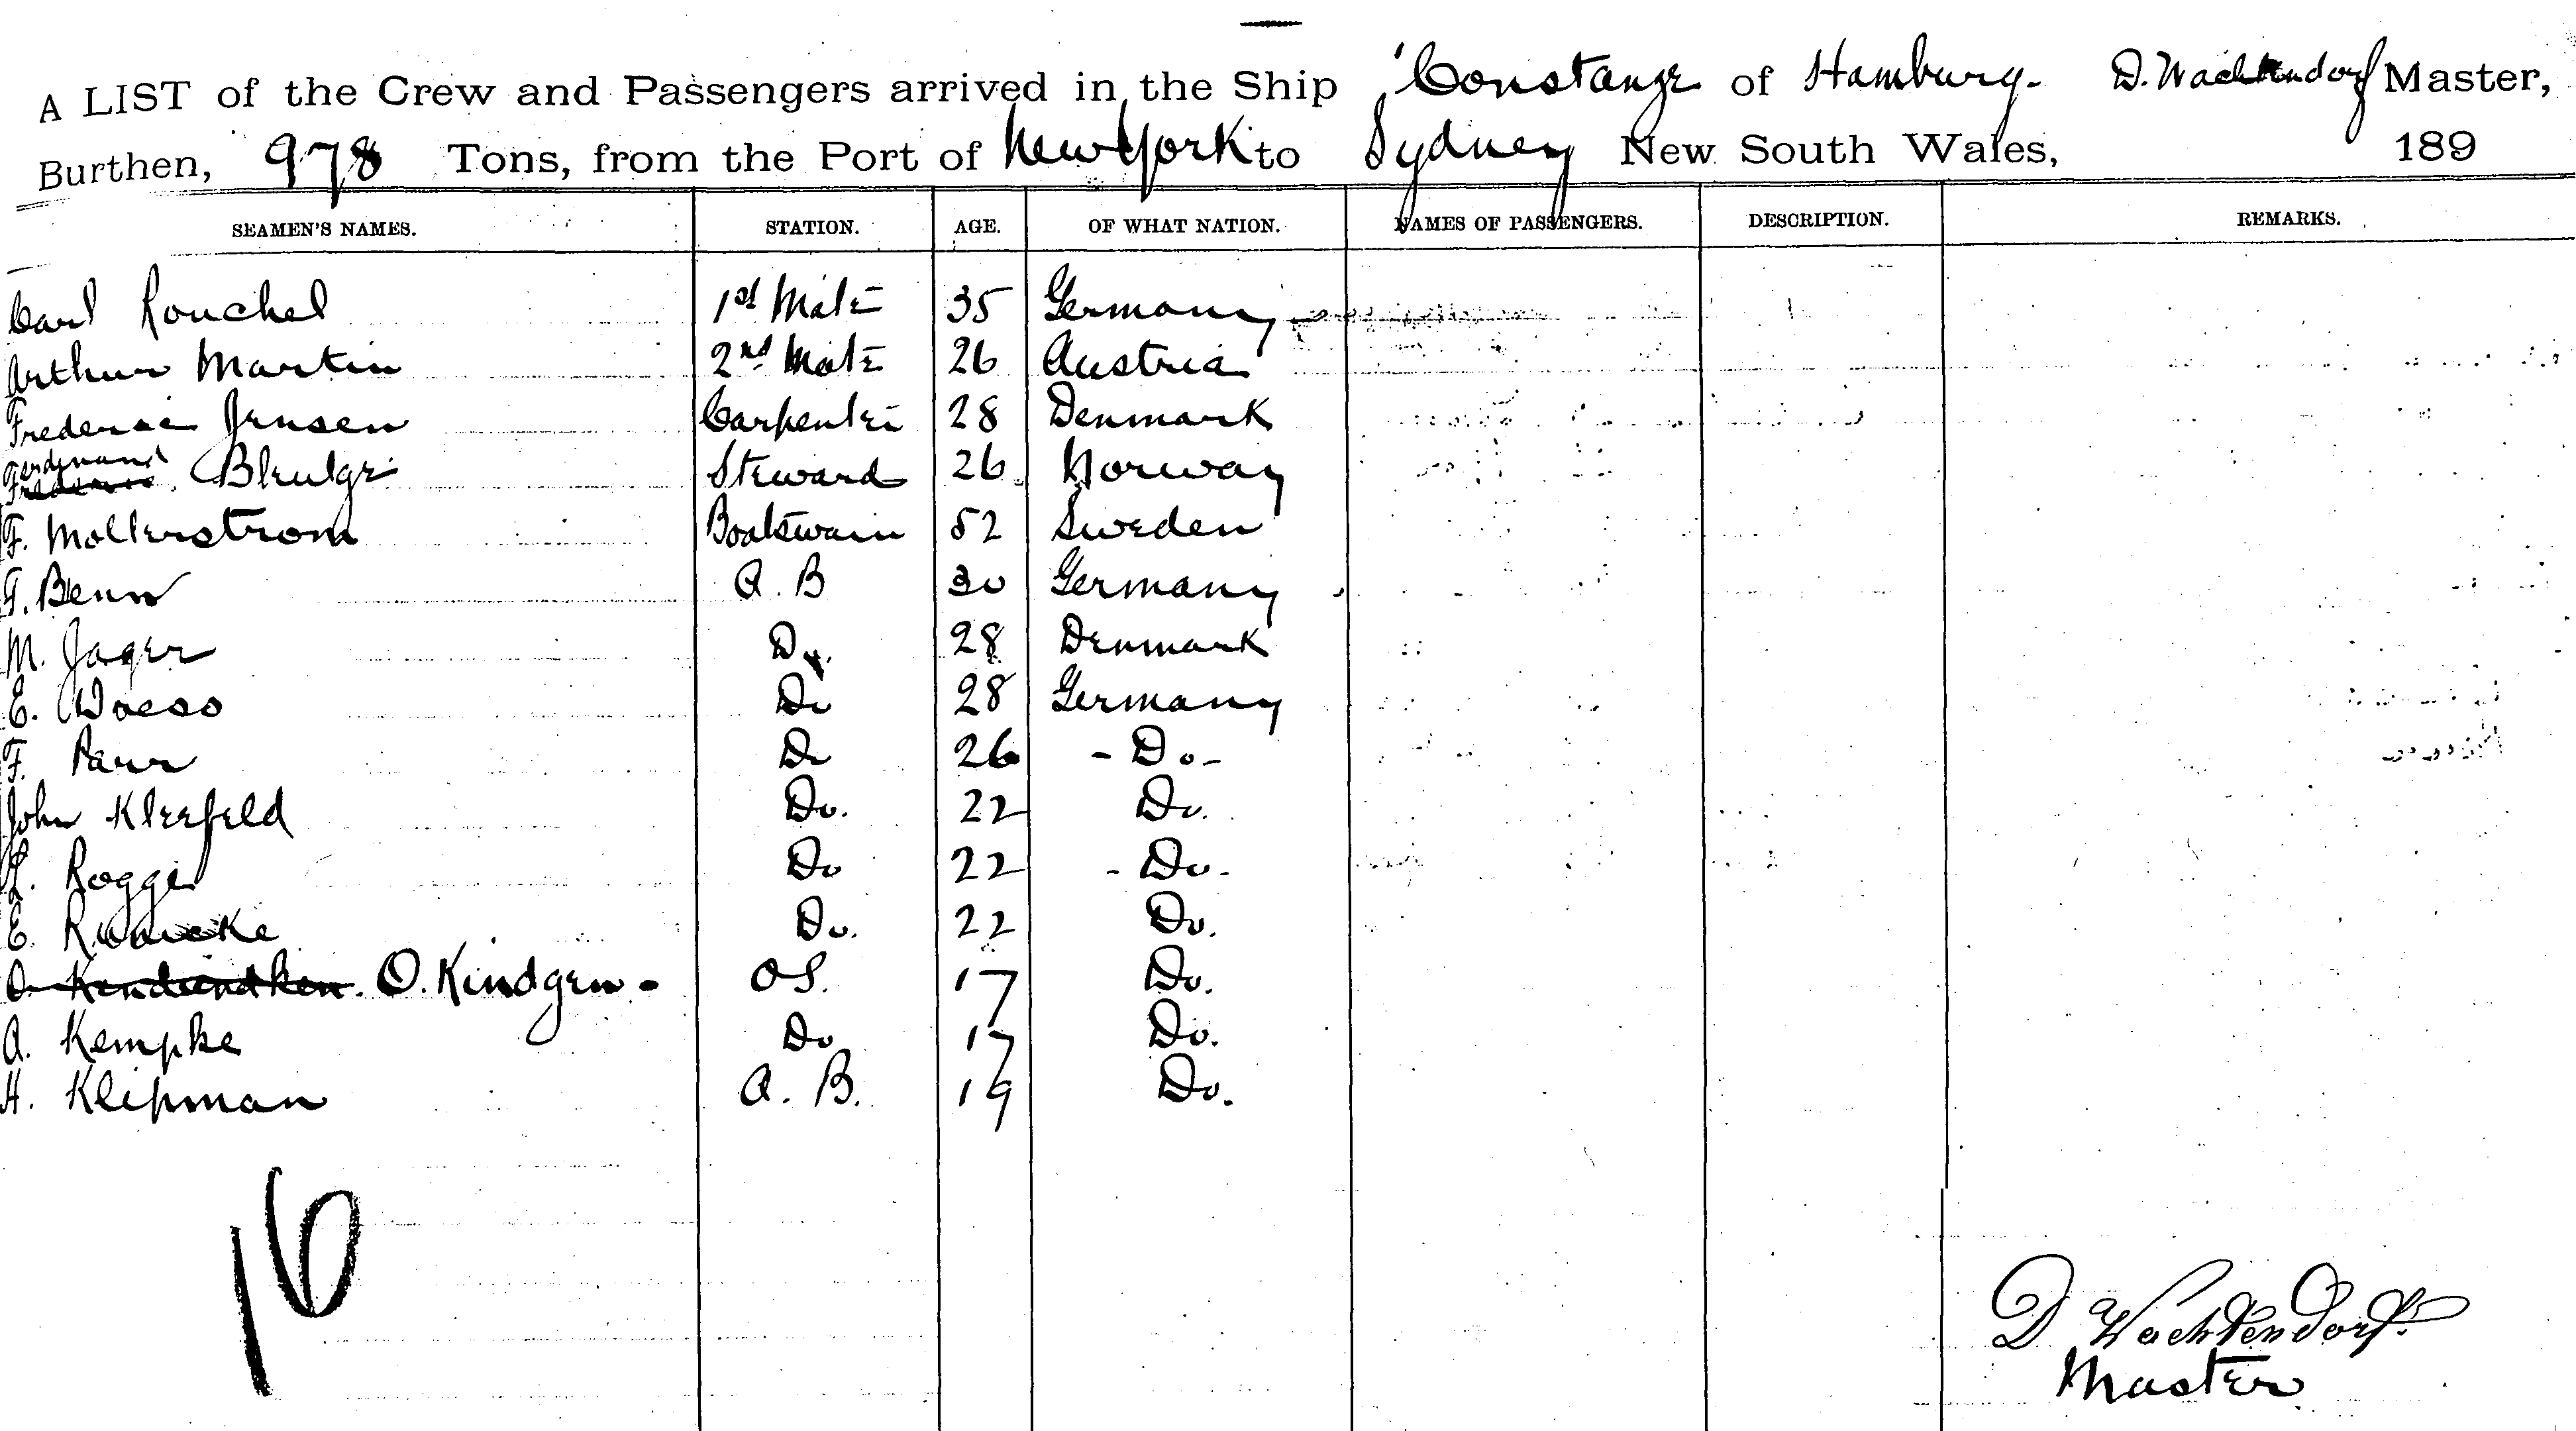 A LIST of the Crew and Passengers arrived in the Ship Constanze of Hamburg. D. Wachtendorf Master,
Burthen, 978 Tons, from the Port of New York to Sydney New South Wales, 189
SEAMEN'S NAMES. STATION. AGE. OF WHAT NATION. NAMES OF PASSENGERS. DESCRIPTION. REMARKS.
Carl Rouchel 1st Mate 35 Germany
Arthur Martin 2nd Mate 26 Austria
Frederic Jensen Carpenter 28 Denmark
Ferdinand
Frederic Steward 26 Norway
F. Mollerstrom Boatswain 52 Sweden
F. Benn A. B 30 Germany
M. Jager Do. 28 Denmark
E. Do 28 Germany
F. Parr Do 26 - Do -
John Kleefeld Do. 22 Do.
Rogge Do 22 - Do -
E. Do. 22 Do.
O. O. Kindgen - OS. 17 Do.
A. Kempke Do 17 Do.
H. Klipman A. B. 19 Do.
16
D Wachtendorf
Master